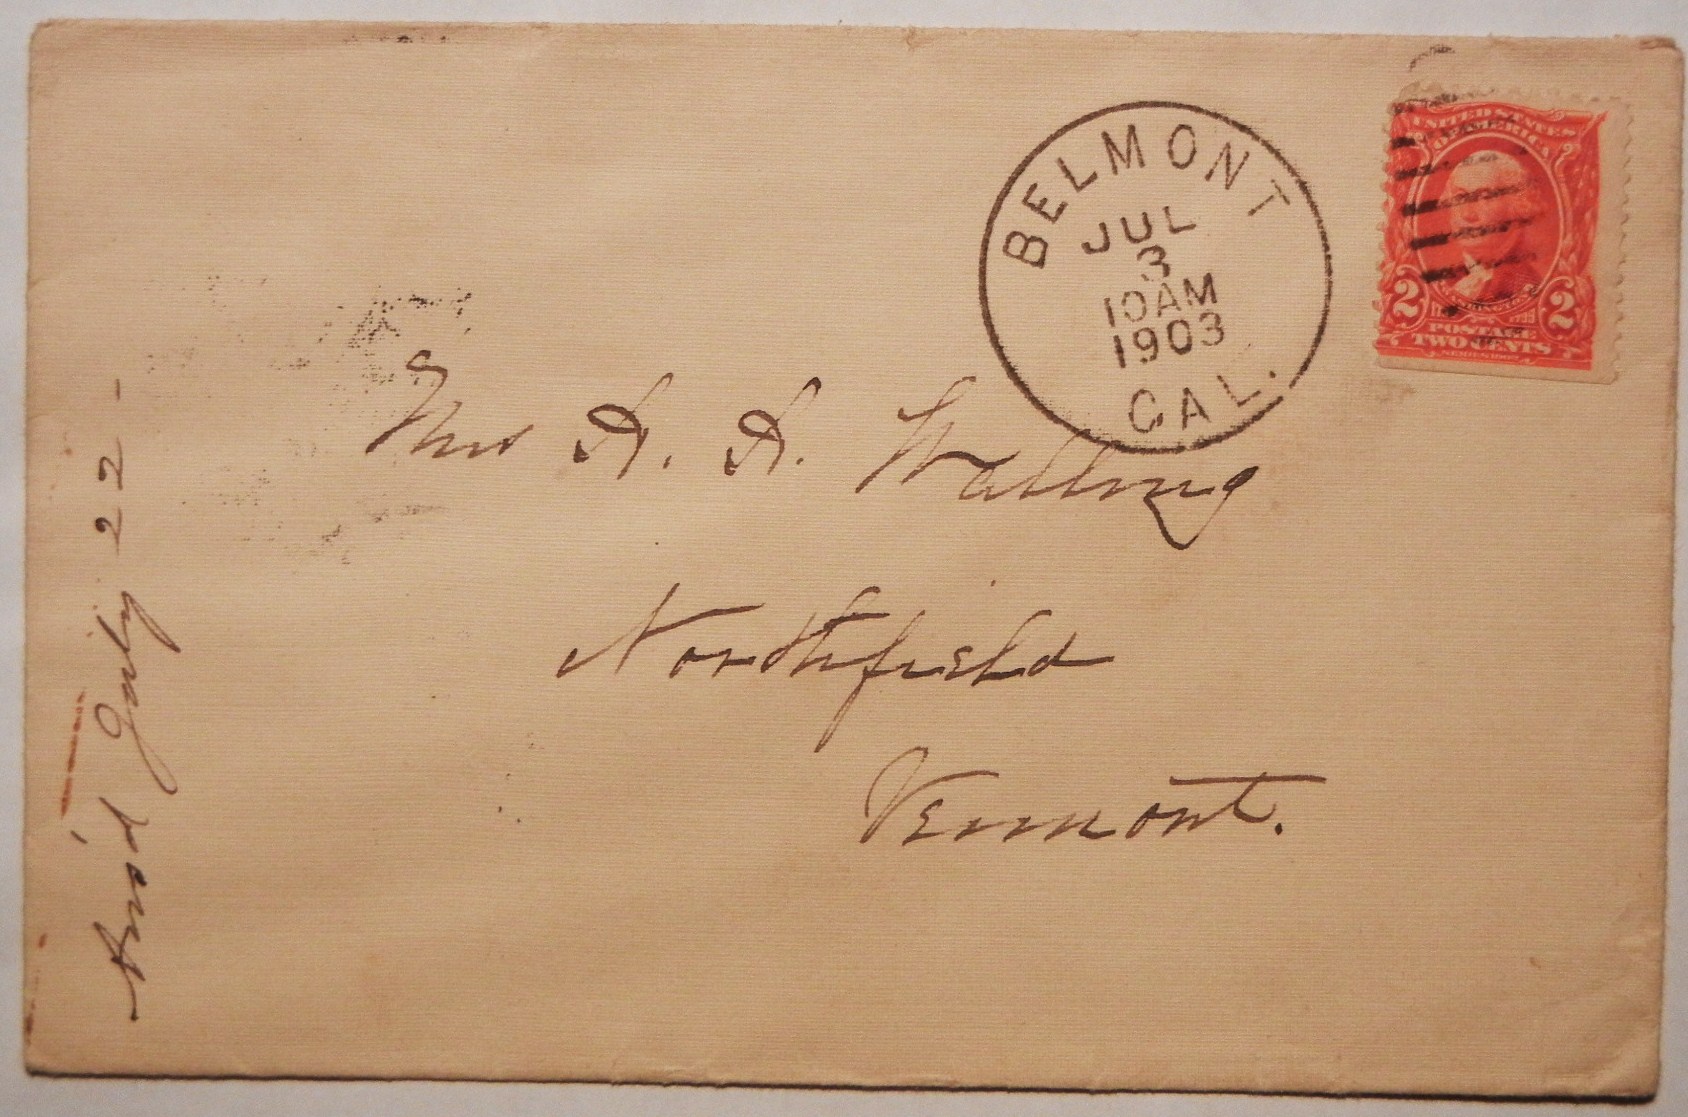 BELMONT
JUL
3
10AM
1903
CAL.
UNITED STATES
OF AMERICA
2 2
WASHINGTON
POSTAGE
TWO CENTS
SERIES 1902
Mrs A. A. Walling
Northfield
Vermont.
July 22-